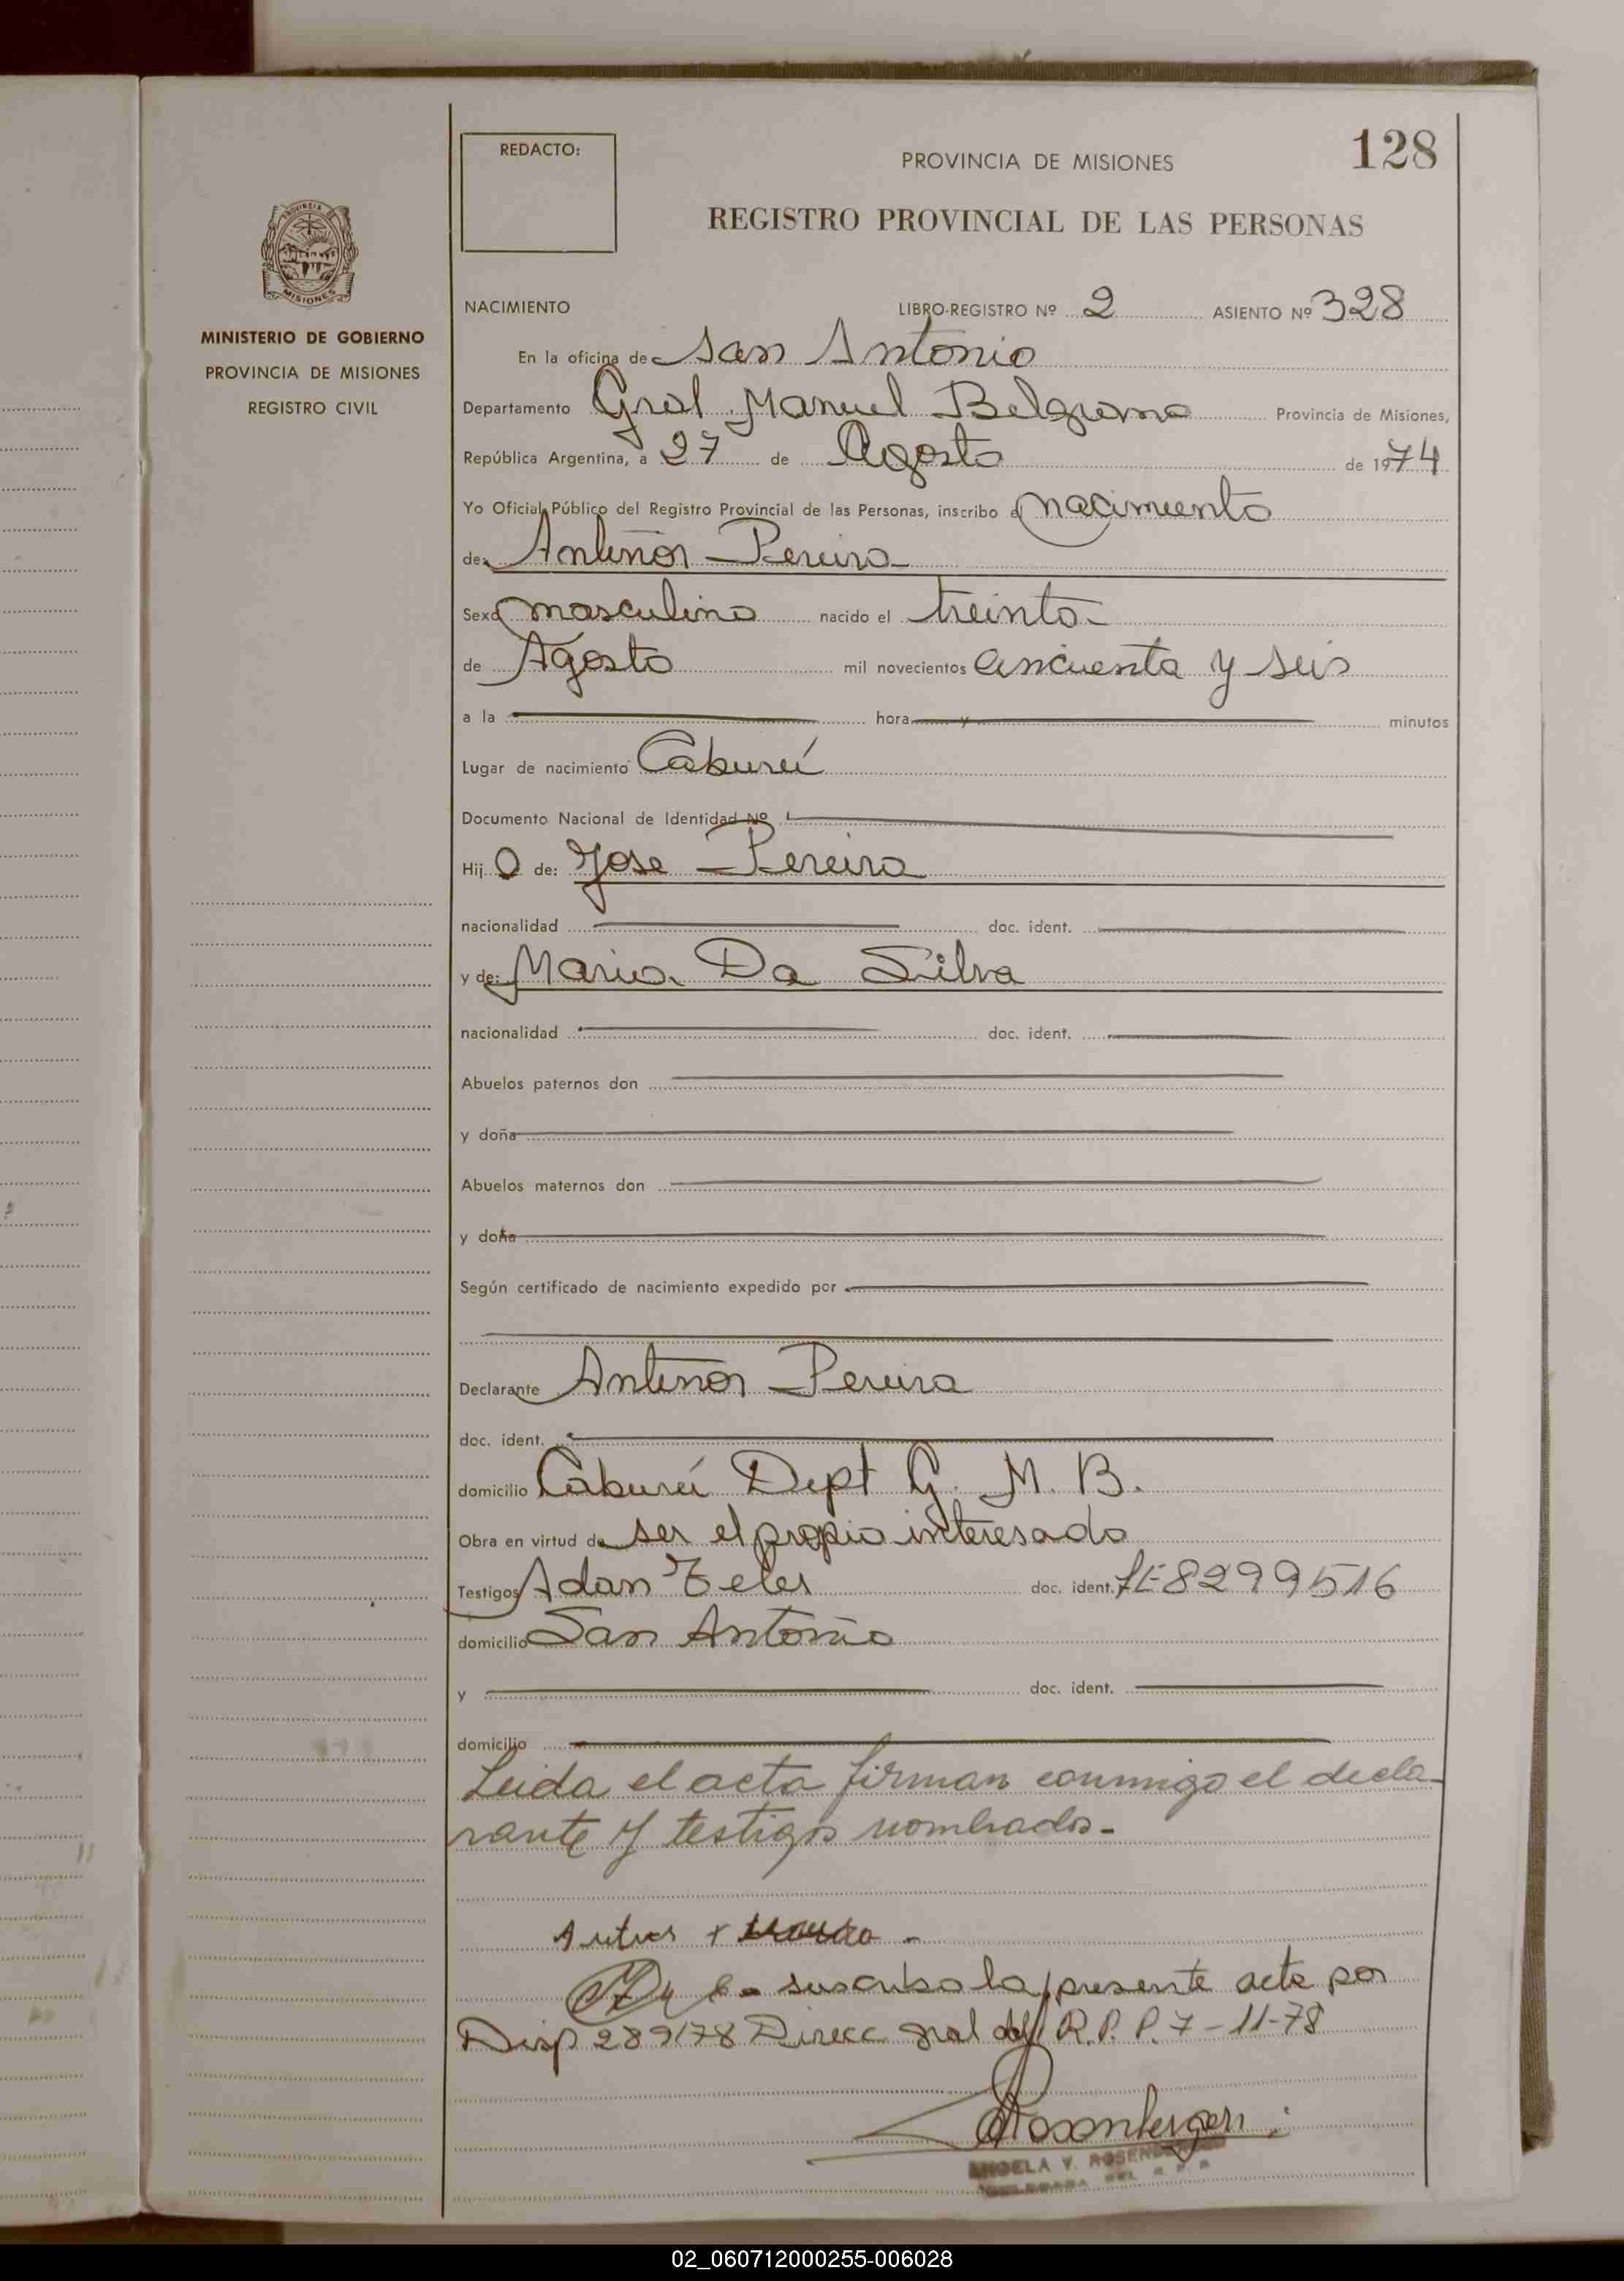 128
REDACTO:
PROVINCIA DE MISIONES
REGISTRO PROVINCIAL DE LAS PERSONAS
PROVINCIA DE
MISIONES
MINISTERIO DE GOBIERNO
PROVINCIA DE MISIONES
REGISTRO CIVIL
NACIMIENTO LIBRO-REGISTRO Nº 2 ASIENTO Nº 328
En la oficina de San Antonio
Departamento Gral Manuel Belgrano Provincia de Misiones,
República Argentina, a 27 de Agosto de 1974
Yo Oficial Público del Registro Provincial de las Personas, inscribo el nacimiento
de: Antenor Pereira
Sexo masculino nacido el treinta
de Agosto mil novecientos cincuenta y seis
a la hora y minutos
Lugar de nacimiento Caburéi
Documento Nacional de Identidad Nº
Hij o de: Jose Pereira
nacionalidad doc. ident.
y de: Maria Da Silva
nacionalidad doc. ident.
Abuelos paternos don
y doña
Abuelos maternos don
y doña
Según certificado de nacimiento expedido por
Declarante Antenor Pereira
doc. ident.
domicilio Caburéi Dept G. M. B.
Obra en virtud de ser el propio interesado
Testigos Adan doc. ident. LE 8299516
domicilio San Antonio
y doc. ident.
domicilio
Leida el acta firman conmigo el decla-
rante y testigos nombrados-
suscribo la presente acta por
Disp 289/78 Direcc gral del R.P.P. 7-11-78
ANGELA V.
02_060712000255-006028